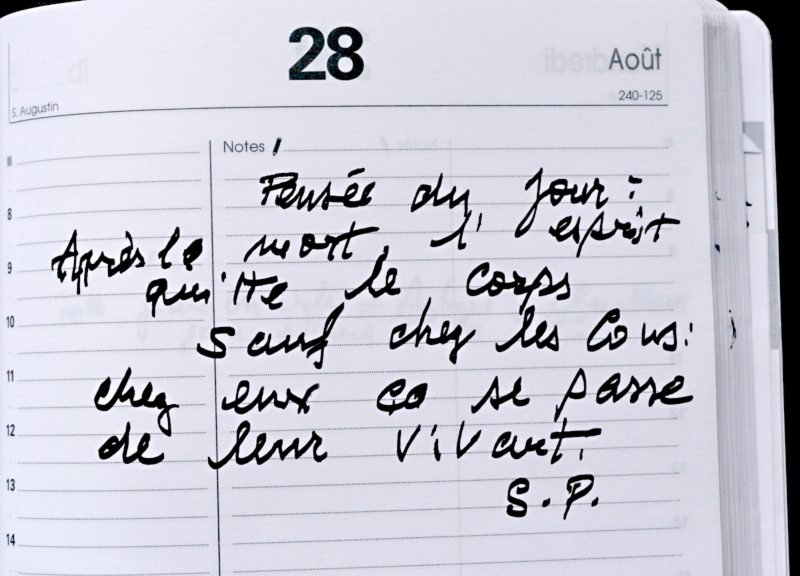 28
Août
S. Augustin
240-125
Notes
Pensée du jour :
Après la mort, l'esprit
quitte le corps
sauf chez les cons :
chez eux ça se passe
de leur vivant.
S.P.
8
9
10
11
12
13
14